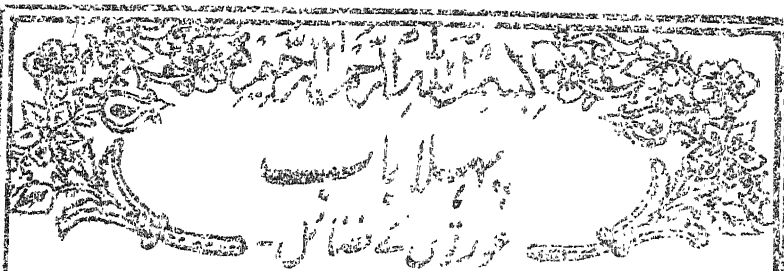 بِسْمِ اللّٰهِ الرَّحْمٰنِ الرَّحِيْمِ
پہلا باب
عورتوں کے فضائل -